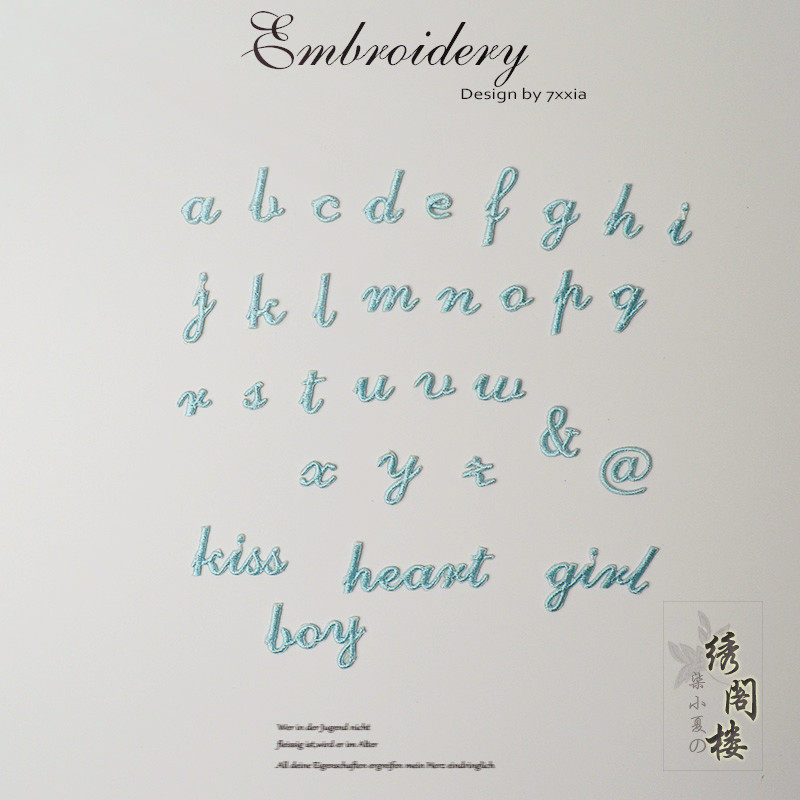 Embroidery
Design by 7xxia
a b c d e f g h i
j k l m n o p q
r s t u v w
& @
x y z
kiss heart girl
boy
Wer in der Jugend nicht
fleissig ist,wird er im Alter
All deine Eigenschaften ergreifen mein Herz eindringlich
绣阁楼
柒小夏の